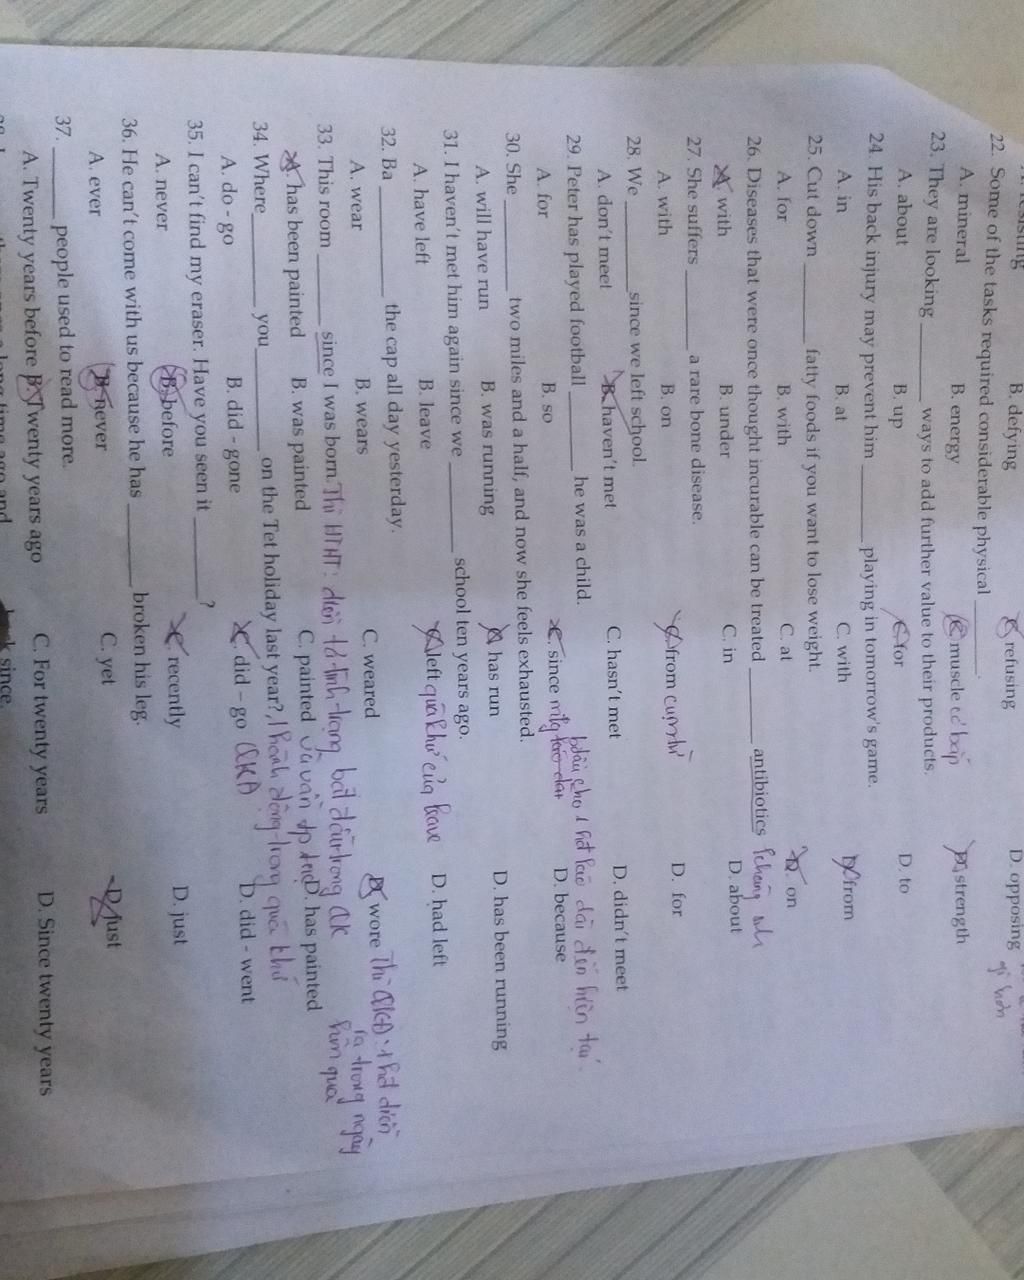 B. defying refusing D. opposing
22. Some of the tasks required considerable physical ________.
A. mineral B. energy C. muscle cơ bắp D. strength
23. They are looking ________ ways to add further value to their products.
A. about B. up C. for D. to
24. His back injury may prevent him ________ playing in tomorrow's game.
A. in B. at C. with D. from
25. Cut down ________ fatty foods if you want to lose weight.
A. for B. with C. at D. on
26. Diseases that were once thought incurable can be treated ________ antibiotics kháng sinh
A. with B. under C. in D. about
27. She suffers ________ a rare bone disease.
A. with B. on C. from cụm từ D. for
28. We ________since we left school.
A. don't meet B. haven't met C. hasn't met D. didn't meet
29. Peter has played football ________ he was a child.
A. for B. so C. since D. because
30. She ________ two miles and a half, and now she feels exhausted.
A. will have run B. was running C. has run D. has been running
31. I haven't met him again since we ________ school ten years ago.
A. have left B. leave C. left quá khứ của leave D. had left
32. Ba ________ the cap all day yesterday.
A. wear B. wears C. weared D. wore Thì QKĐ: diễn
ra trong ngày
hôm qua
33. This room ________ since I was born. Thì HTHT: diễn tả tình trạng bắt đầu trong QK
A. has been painted B. was painted C. painted và vẫn D. has painted
34. Where________ you________ on the Tet holiday last year? hành động trong quá khứ
A. do - go B. did - gone C. did – go QKĐ D. did - went
35. I can't find my eraser. Have you seen it ________?
A. never B. before C. recently D. just
36. He can't come with us because he has ________ broken his leg.
A. ever B. never C. yet D. just
37. ________ people used to read more.
A. Twenty years before B. Twenty years ago C. For twenty years D. Since twenty years